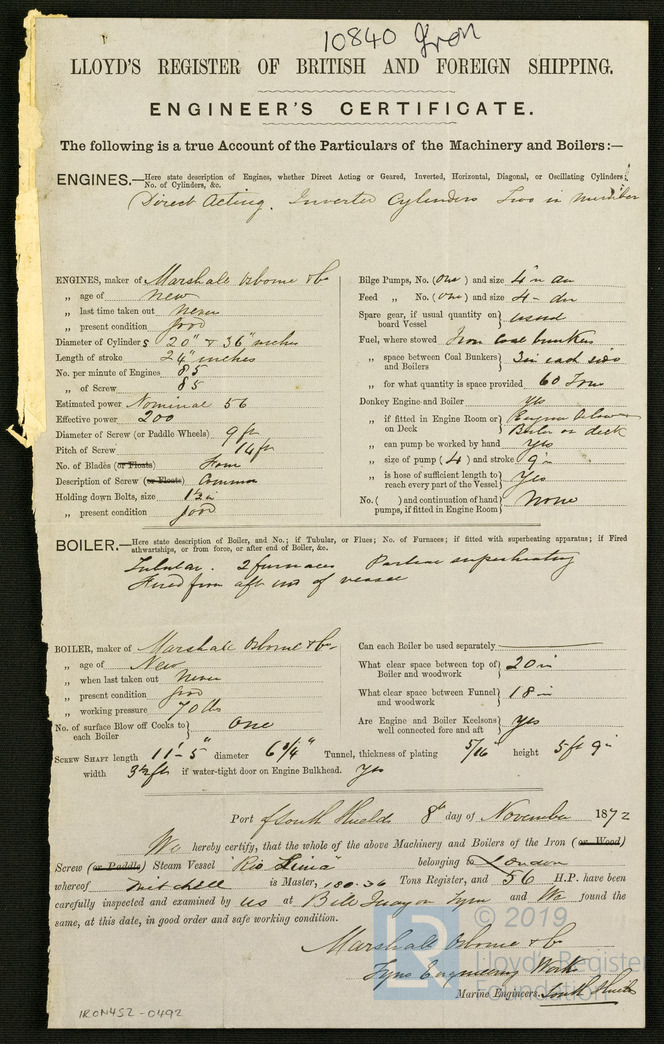 10840 Iron
LLOYD'S REGISTER OF BRITISH AND FOREIGN SHIPPING.
ENGINEER'S CERTIFICATE.
The following is a true Account of the Particulars of the Machinery and Boilers:—
ENGINES.—Here state description of Engines, whether Direct Acting or Geared, Inverted, Horizontal, Diagonal, or Oscillating Cylinders;
No. of Cylinders, &c.
Direct Acting. Inverted Cylinders Two in number
ENGINES, maker of Marshall Osborne & Co
„ age of New
„ last time taken out Never
„ present condition Good
Diameter of Cylinders 20" & 36" inches
Length of stroke 24" inches
No. per minute of Engines 85
„ of Screw 85
Estimated power Nominal 56
Effective power 200
Diameter of Screw (or Paddle Wheels) 9 ft
Pitch of Screw 14 ft
No. of Blades (or Floats) Four
Description of Screw (or Floats) Common
Holding down Bolts, size 1½ in
„ present condition good
Bilge Pumps, No. (one) and size 4 in
Feed „ No. (one) and size 4
Spare gear, if usual quantity on board Vessel } usual
Fuel, where stowed Iron coal bunkers
„ space between Coal Bunkers and Boilers } 3 in each side
„ for what quantity is space provided 60 Tons
Donkey Engine and Boiler Yes
„ if fitted in Engine Room or on Deck } Engine below Boiler on deck
„ can pump be worked by hand Yes
„ size of pump (4) and stroke 9 in
„ is hose of sufficient length to reach every part of the Vessel } Yes
No. ( ) and continuation of hand pumps, if fitted in Engine Room } None
BOILER.—Here state description of Boiler, and No.; if Tubular, or Flues; No. of Furnaces; if fitted with superheating apparatus; if Fired
athwartships, or from force, or after end of Boiler, &c.
Tubular. 2 furnaces Partial superheating
Fired from aft end of vessel
BOILER, maker of Marshall Osborne & Co
„ age of New
„ when last taken out Never
„ present condition good
„ working pressure 70 lbs
No. of surface Blow off Cocks to each Boiler } One
Can each Boiler be used separately
What clear space between top of Boiler and woodwork } 20 in
What clear space between Funnel and woodwork } 18 in
Are Engine and Boiler Keelsons well connected fore and aft } Yes
SCREW SHAFT length 11'-5" diameter 6¾" Tunnel, thickness of plating 5/16" height 5 ft 9 in
width 3½ ft if water-tight door on Engine Bulkhead. Yes
Port of South Shields 8th day of November 1872
We hereby certify, that the whole of the above Machinery and Boilers of the Iron (or Wood)
Screw (or Paddle) Steam Vessel "Rio Lima" belonging to London
whereof Mitchell is Master, 180.36 Tons Register, and 56 H.P. have been
carefully inspected and examined by us at Bell Quay on Tyne and We found the
same, at this date, in good order and safe working condition.
Marshall Osborne & Co
Tyne Engineering Works
Marine Engineers. South Shields
IRON452-0492
LR © 2019
Lloyd's Register
Foundation